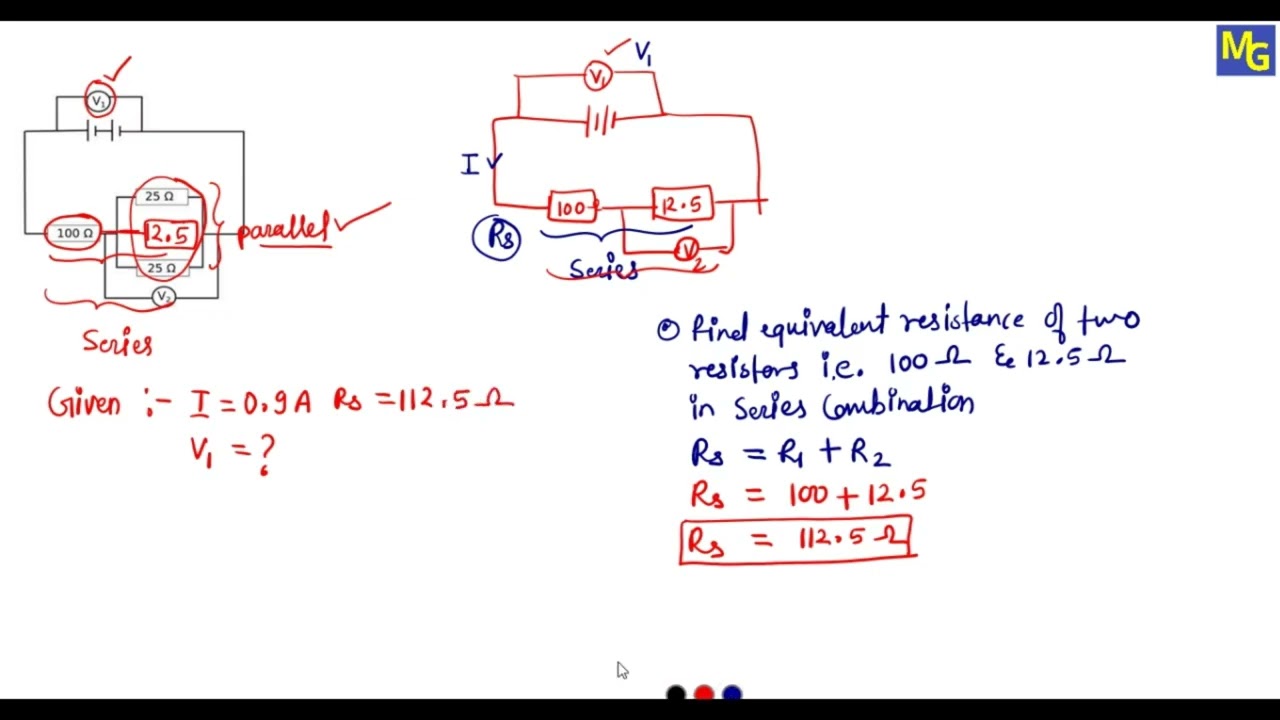 MG
V₁
25 Ω
100 Ω
12.5
25 Ω
V₂
parallel
Series
V₁
V₁
I
100
12.5
Rs
V₂
Series
Given :- I = 0.9A Rs = 112.5 Ω
V₁ = ?
Find equivalent resistance of two
resistors i.e. 100 Ω & 12.5 Ω
in Series Combination
Rs = R₁ + R₂
Rs = 100 + 12.5
Rs = 112.5 Ω